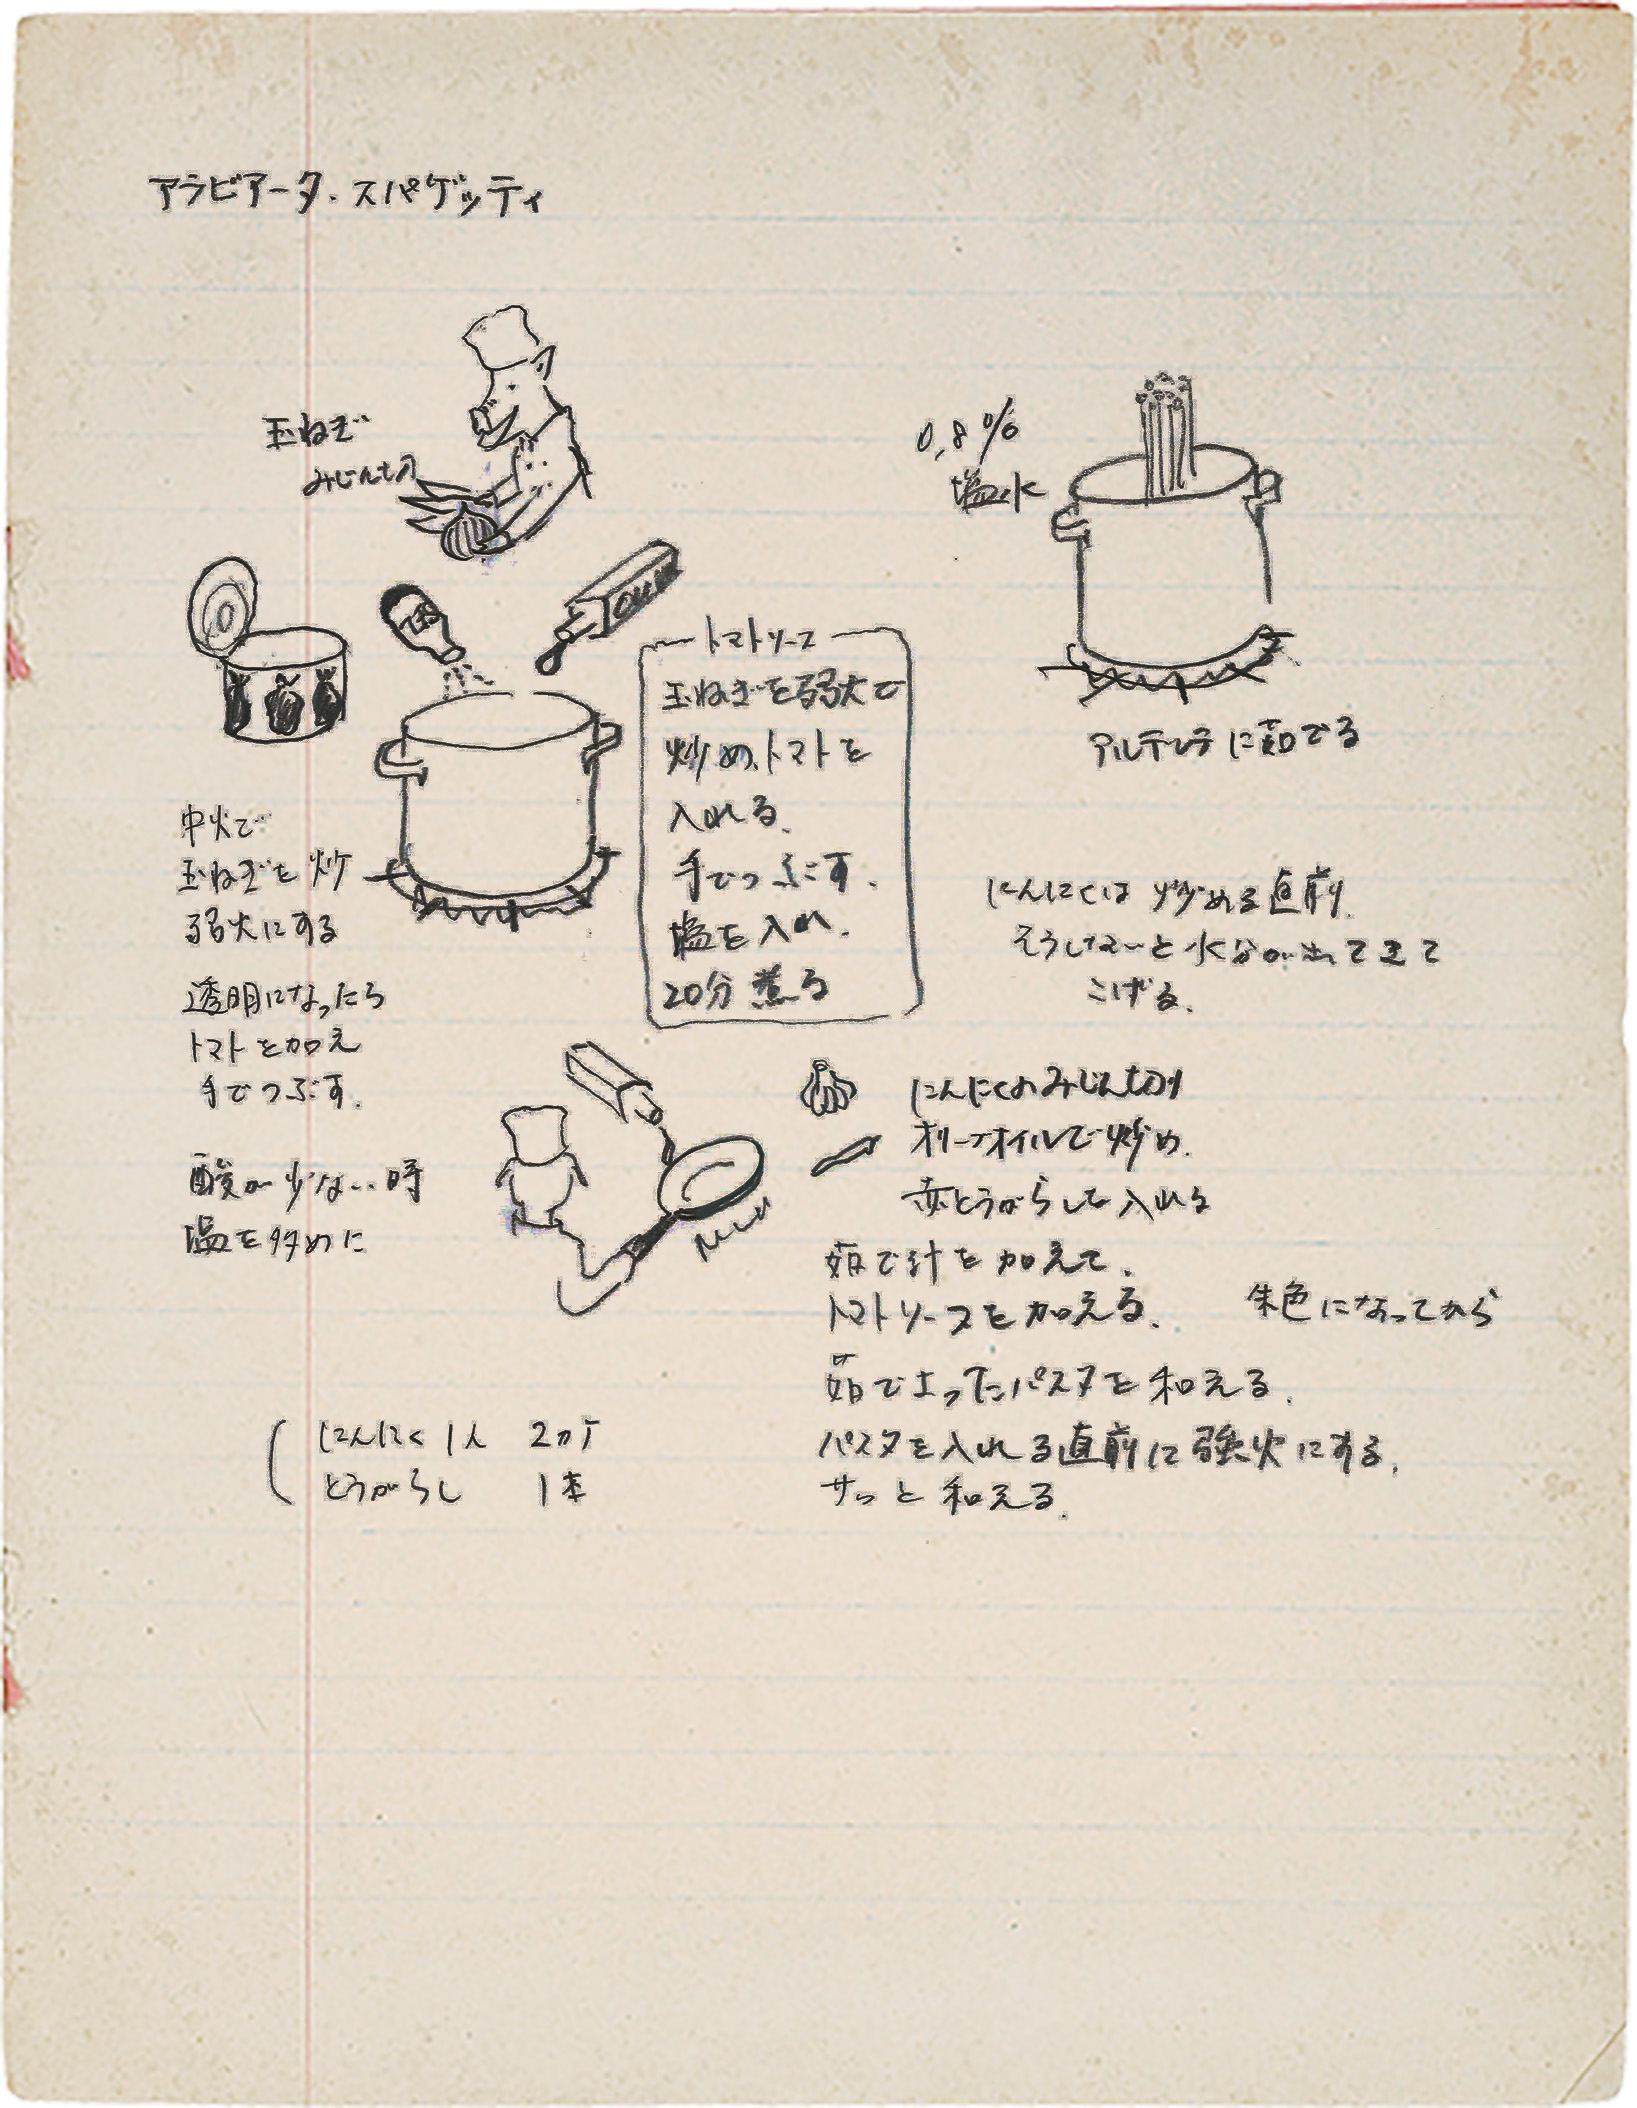 アラビアータ・スパゲッティ
玉ねぎ
みじん切
0,8%
塩水
OLIO
トマトソース
玉ねぎを弱火で
炒め、トマトを
入れる。
手でつぶす。
塩を入れ、
20分煮る
アルデンテに茹でる
中火で
玉ねぎを炒
弱火にする
透明になったら
トマトを加え
手でつぶす。
酸が少ない時
塩を多めに
にんにくは炒める直前。
そうしないと水分が出てきて
こげる。
にんにくのみじん切り
オリーブオイルで炒め。
赤とうがらしを入れる
茹で汁を加えて、
トマトソースを加える。 朱色になってから
茹で上ったパスタを和える。
パスタを入れる直前に強火にする。
サッと和える。
にんにく 1人 2ヵケ
とうがらし 1本